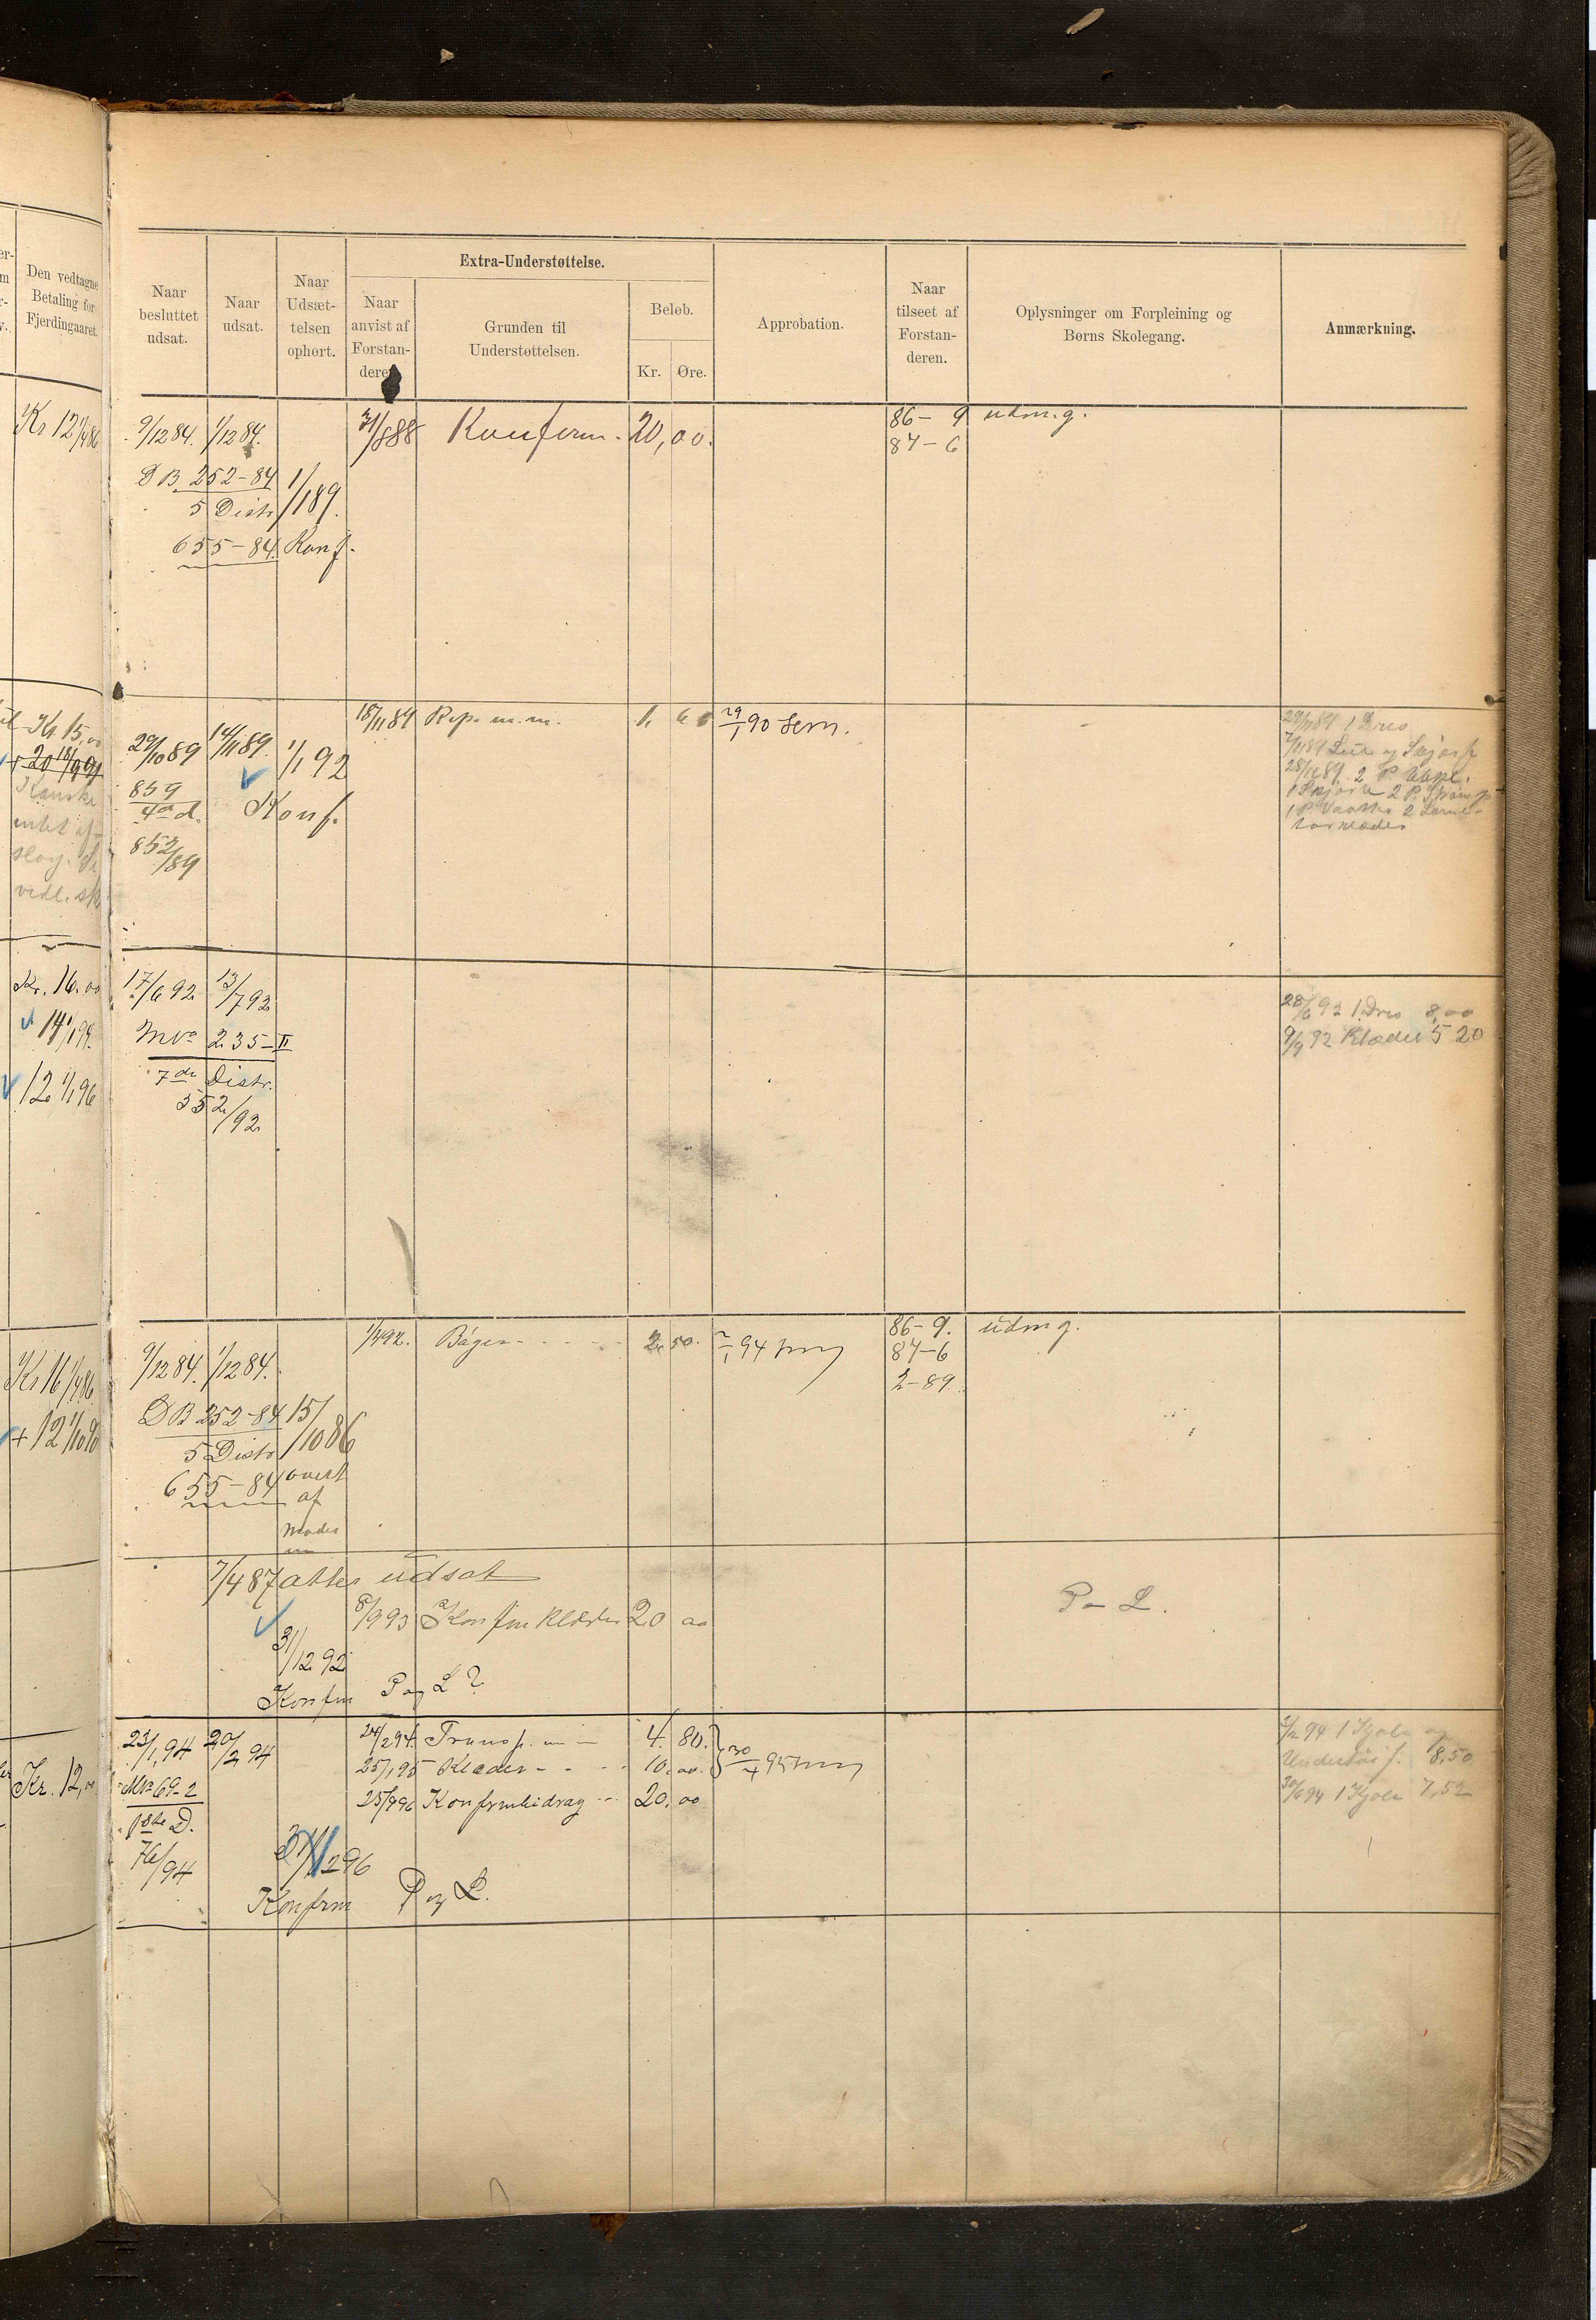 Den vedtagne
Betaling for
Fjerdingaaret.
Naar
besluttet
udsat.
Naar
udsat.
Naar
Udsæt-
telsen
ophørt.
Extra-Understøttelse.
Naar
anvist af
Forstan-
deren
Grunden til
Understøttelsen.
Beløb.
Kr. Øre.
Approbation.
Naar
tilseet af
Forstan-
deren.
Oplysninger om Forpleining og
Børns Skolegang.
Anmærkning.
Kr 12 1/4 86
9/12 84. 1/12 84. 31/8 88 Konfirm. 20,00. 86 – 9 udm. g.
87 – 6
DB 252–84 1/1 89.
5 Distr
655–84. Konf.
Kr 15,00
+ 20 18/9 91
29/10 89 14/11 89. 1/1 92 18/11 89 Rep. m.m. 29/1 90
859
4de d. Konf.
852/89
29/11 89 1 Dres
28/12 89 2 P.
1 Skjorte 2 P. Strømp
1 P. Vanter 2
Kr. 16.00
17/6 92 13/7 92
14 1/1 94.
No 235–II
7de Distr.
552/92
12 1/1 96
28/6 92 1 Dres 8,00
9/9 92 Klæder 5 20
Kr 16 1/4 86
+ 12 1/10 90
9/12 84. 1/12 84. 1/4 92. Bøger 2.50. 94 86–9. udm g.
87–6
2–89.
DB 252–84 15/10 86
5 Distr
655–84 overt
af
Moder
7/4 87 atter udsat
8/9 93 Konfirm Klæder 20 00
P og L.
31/12 92
Konfm P og L ?
Kr. 12,00
23/1 94 20/2 94 24/2 94. Transp. 4. 80.
25/1 95 Klæder 10.00. 95
25/9 96 Konfrmbidrag 20.00
No 69–2
1ste D.
76/94
31/12 96
Konfrm P og L.
2/2 94 1 Kjole og
Undertøi f. 8,50
30/6 94 1 Kjole 7,52